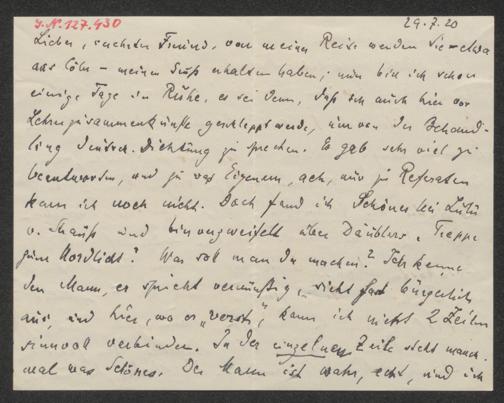 J.N. 127.430
29.7.20
Lieber, Freund, von meiner Reise werden Sie – etwa
aus Cöln – meinen Gruß erhalten haben; nun bin ich schon
einige Tage in Ruhe, es sei denn, daß ich auch hier vor
Lehrerzusammenkünfte geschleppt werde, um von der Behand-
lung deutsch. Dichtung zu sprechen. Es gab sehr viel zu
beantworten, und zu was Eigenem, ach, nur zu Referaten
kam ich noch nicht. Doch fand ich Schönes bei Lulu
v. Strauß und bin verzweifelt über Däublers Treppe
zum Nordlicht! Was soll man da machen? Ich kenne
den Mann, er spricht vernünftig, sieht fast bürgerlich
aus, und hier, wo er „verst", kann ich nicht 2 Zeilen
sinnvoll verbinden. In der einzelnen Zeile steht manch-
mal was Schönes. Der Mann ist wahr, echt, und ich